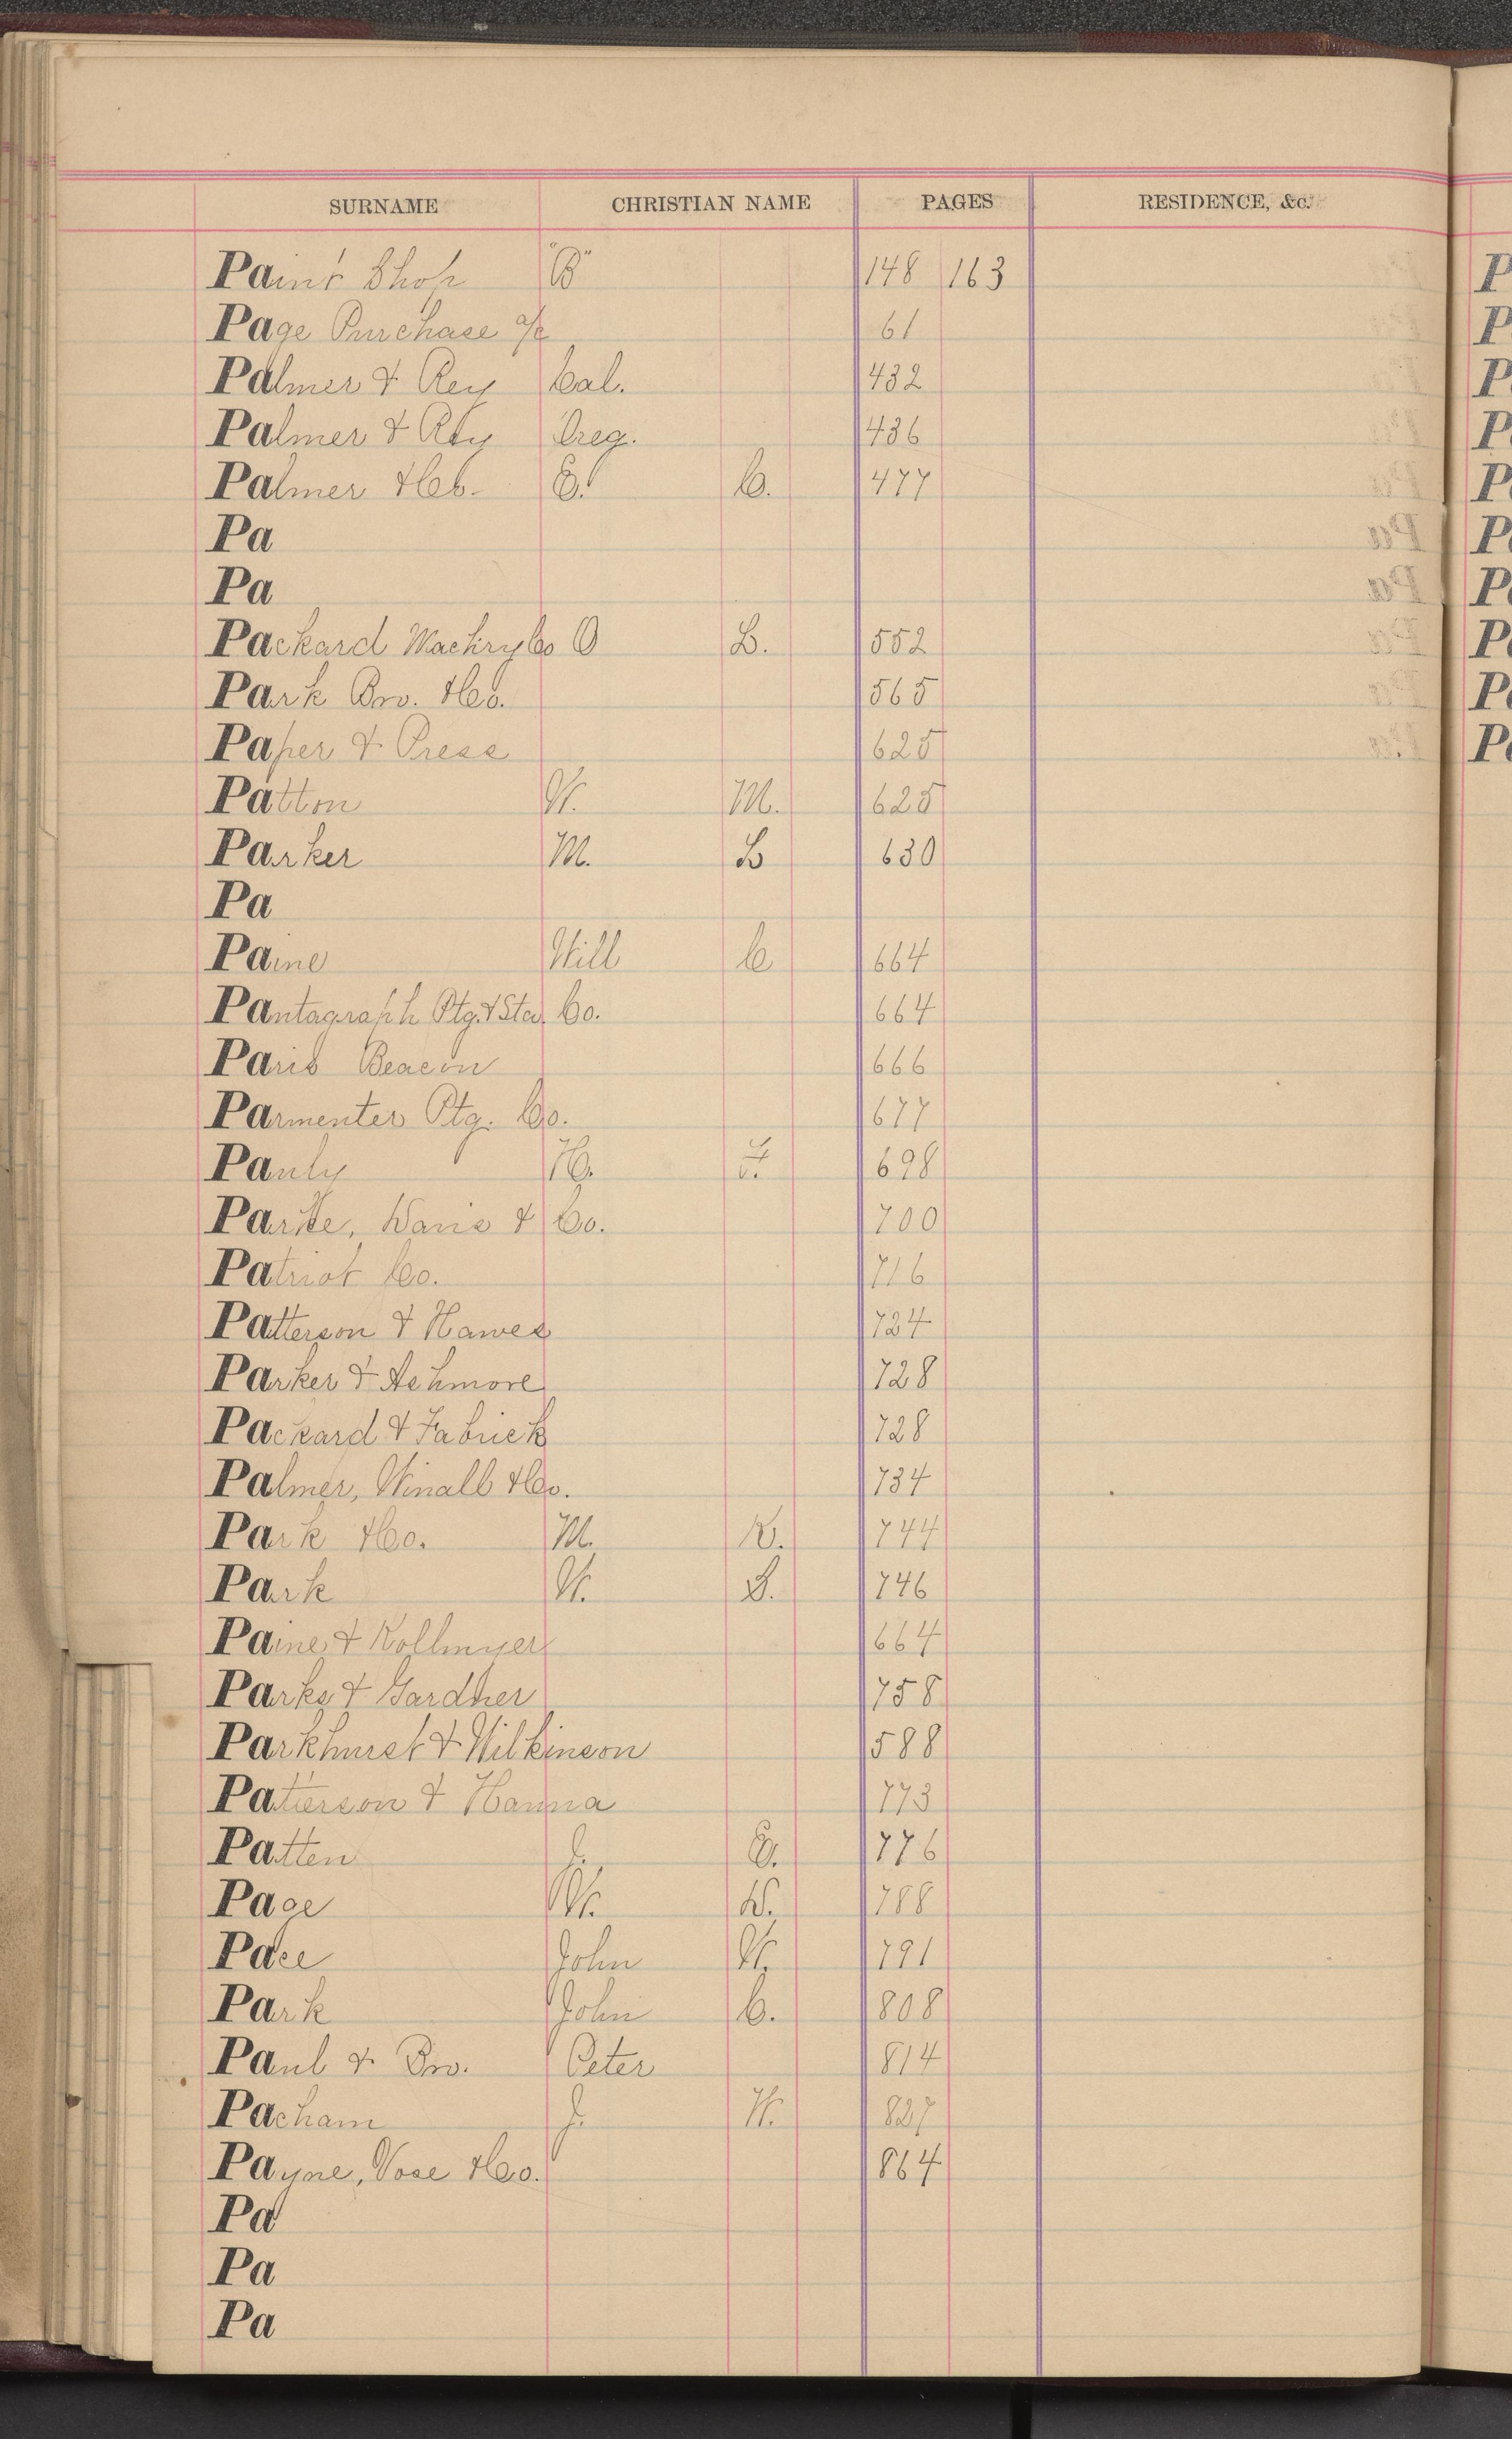 SURNAME CHRISTIAN NAME PAGES RESIDENCE, &c.
Paint Shop "B" 148 163
Page Purchase a/c 61
Palmer & Rey Cal. 432
Palmer & Rey Oreg. 436
Palmer & Co. E. C. 477
Pa
Pa
Packard Machry Co O B. 552
Park Bro. & Co. 565
Paper & Press 625
Patton W. M. 625
Parker M. L 630
Pa
Paine Will C 664
Pantagraph Ptg. & Sta. Co. 664
Paris Beacon 666
Parmenter Ptg. Co. 677
Pauly H. F. 698
Parke, Davis & Co. 700
Patriot Co. 716
Patterson & Hawes 724
Parker & Ashmore 728
Packard & Fabrick 728
Palmer, Winall & Co. 734
Park & Co. M. R. 744
Park W. S. 746
Paine & Kollmyer 664
Parks & Gardner 758
Parkhurst & Wilkinson 588
Patterson & Hanna 773
Patten J. E. 776
Page W. D. 788
Pace John W. 791
Park John C. 808
Paul & Bro. Peter 814
Pacham J. H. 827
Payne, Vose & Co. 864
Pa
Pa
Pa